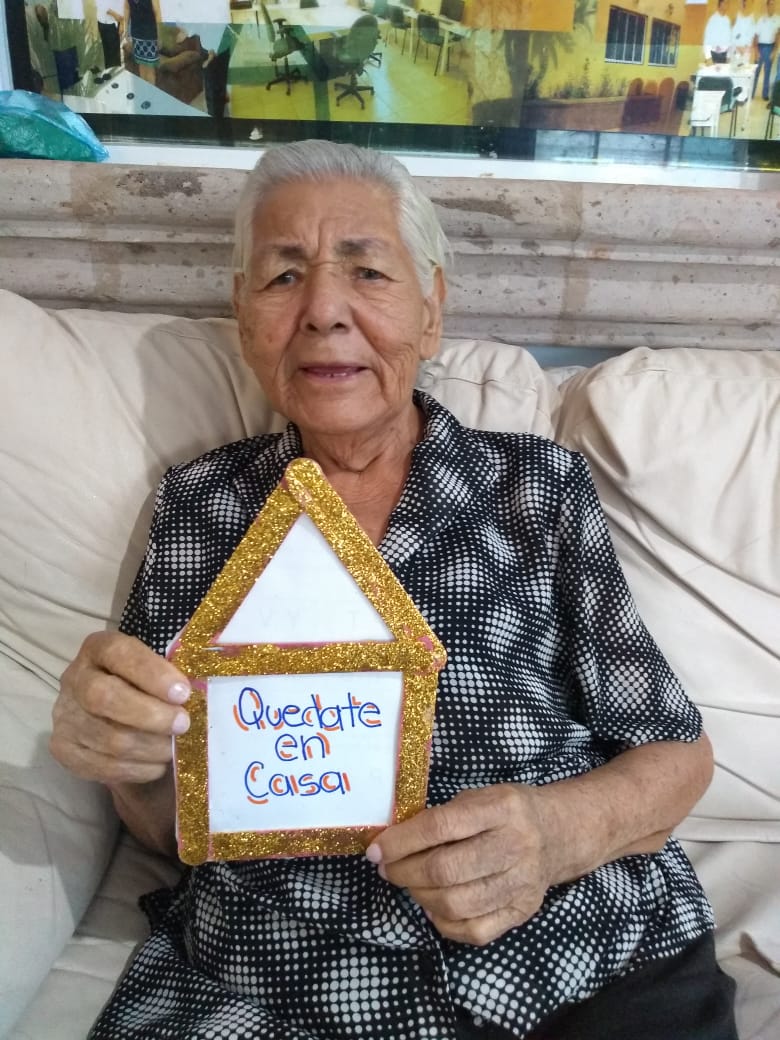 Quedate
en
Casa